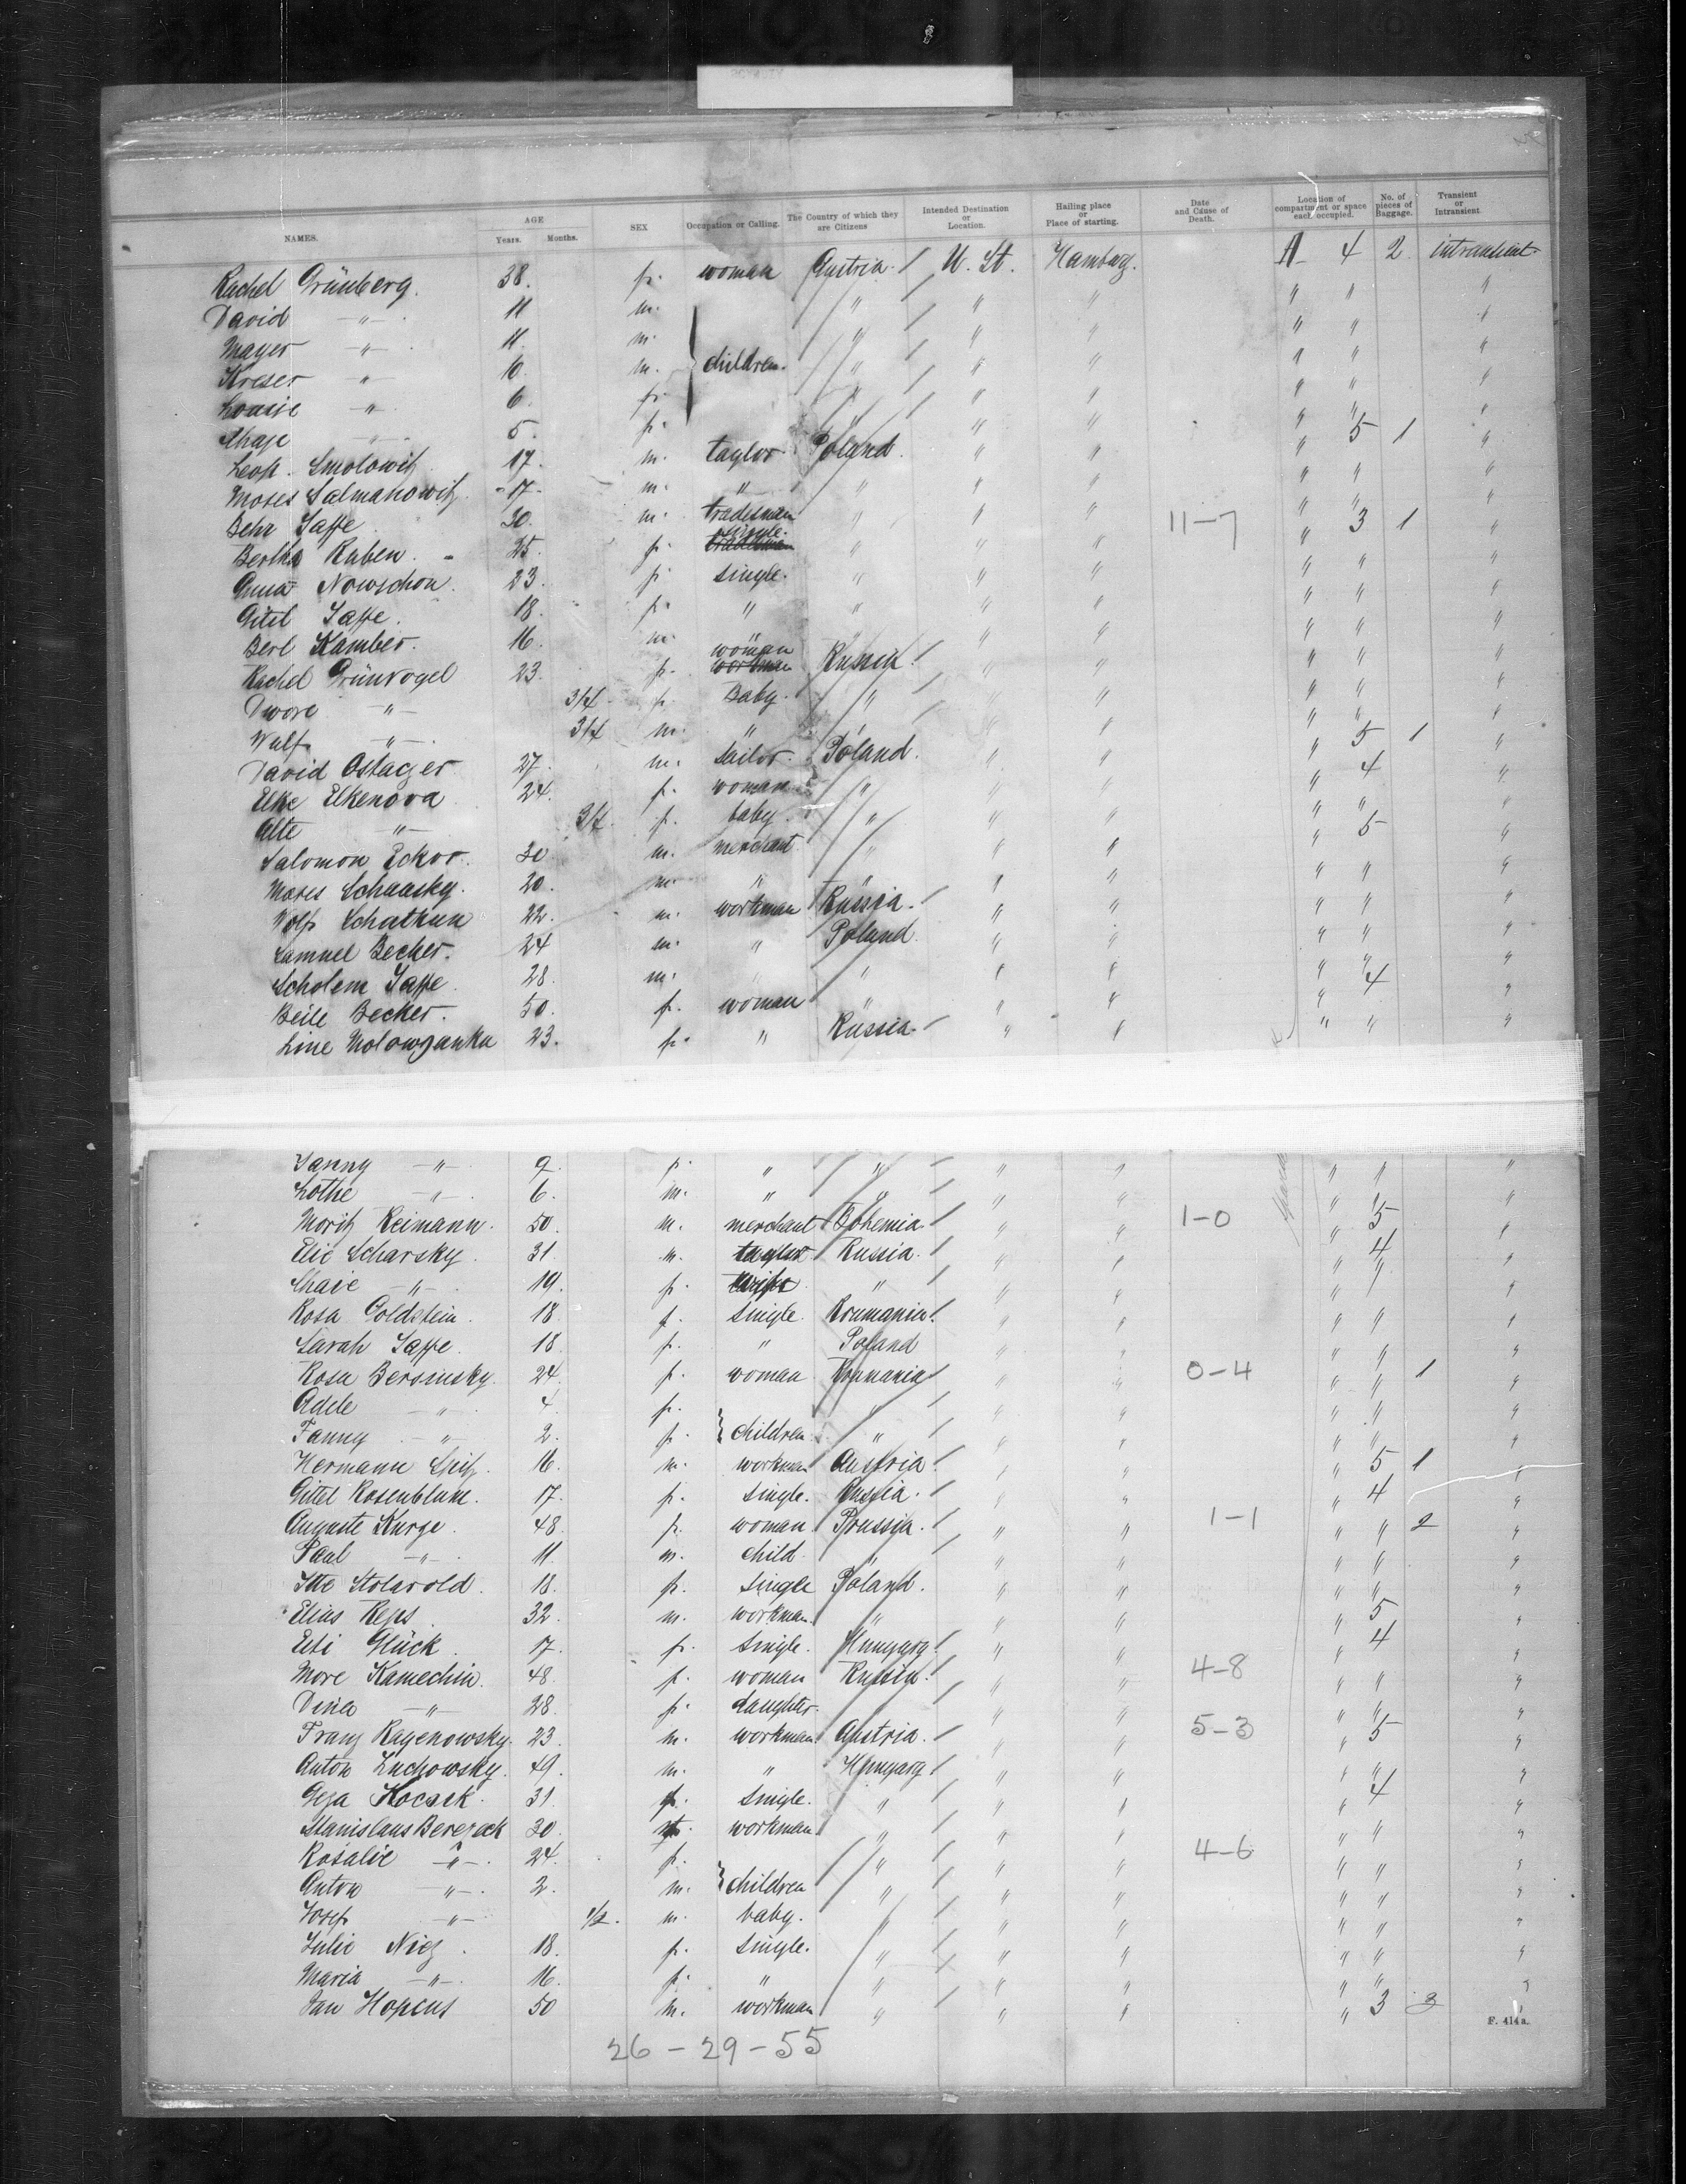 NAMES. AGE Years. Months. SEX Occupation or Calling. The Country of which they are Citizens Intended Destination or Location. Hailing place or Place of starting. Date and Cause of Death. Location of compartment or space each occupied. No. of pieces of Baggage. Transient or Intransient.
Rachel Grünberg. 38. f. woman Austria. / U. St. Hamburg. A 4 2 intransient
David —"— . 11 m. " / " " " " "
Mayer —"— . 11. m. " / " " " " "
Kreser —"— 10. m. } children. " / " " " " "
Louise —"— 6. f. " / " " " " "
Chaje —"— 5. f. " / " " " " "
Leop. Smolowitz 17. m. taylor Poland. " " " 5 1 "
Moses Salmanowitz. 17. m. " " " " " " "
Behr Jaffe 20. m. tradesman " " " " " "
Bertha Ruben. 25. f. single. " " " 11-7 " 3 1 "
Anna Nowschon. 23. f. single. " " " " " "
Gitel Jaffe. 18. f. " " " " " " "
Berl Kamber. 16. m. " " " " "
Rachel Grünvogel 23. f. woman Russia. / " " " " "
Dwore —"— 3/4 f. Baby. " / " " " " "
Wulf —"— . 3/4 m. " " / " " " " "
David Ostacger 27. m. sailor. Poland. " " " 5 1 "
Elke Elkenova 24. f. woman " " " " 4 "
Alte —"— 3/4. f. baby. " " " " " "
Salomon Eckor. 30 m. merchant " " " " 5 "
Moses Schaasky. 20. m. " " " " " " "
Wolf Schatkun 22. m. workman Russia. / " " " " "
Samuel Becher. 24 m. " Poland. " " " " "
Scholem Jaffe. 28. m. " " " " " " "
Beile Becher. 50. f. woman " " " " 4 "
Line Molowzanka 23. f. " Russia. / " " " " "
Fanny —"— . 9. f. " " / " " " " "
Lothe —"— . 6. m. " " / " " " " "
Moritz Reimann. 50. m. merchant Bohemia. / " " 1-0 " 5 "
Elie Scharsky. 31. m. taylor Russia. / " " " 4 "
Chaie —"— 19. f. " / " " " " "
Rosa Goldstein. 18. f. single. Roumania. / " " " " "
Sarah Jaffe. 18. f. " Poland " " " " "
Rosa Bersinsky. 24. f. woman Roumania / " " 0-4 " " 1 "
Adele —"— . 4. f. " / " " " " "
Fanny —"— 2. f. } children " / " " " " "
Hermann Spitz. 16. m. workman Austria. / " " " 5 1 "
Gittel Rosenblum. 17. f. single. Russia. / " " " 4 "
Auguste Kurze. 48. f. woman Prussia. / " " 1-1 " " 2 "
Paul —"— . 11. m. child. " / " " " " "
Itte Stolarold. 18. f. single Poland. " " " " "
Elias Reps 32. m. workman. " " " " 5 "
Esti Glück 17. f. single. Hungary. / " " " 4 "
More Kamechin. 48. f. woman Russia. / " " 4-8 " " "
Dina —"— 28. f. daughter. " " " " "
Franz Ragenowsky. 23. m. workman Austria. / " " 5-3 " 5 "
Anton Zuchowsky. 49. m. " Hungary. / " " " " "
Geza Kocsik. 31. f. single. " " " " 4 "
Stanislaus Berezeck 30. workman " " " " " "
Rosalie —"— . 24. f. " / " " 4-6 " " "
Anton —"— . 2. m. } children " / " " " " "
Josef —"— 1/2. m. baby. " / " " " " "
Julie Niez. 18. f. single. " / " " " " "
Maria —"— . 16. f. " " / " " " " "
Jan Hopcus 50 m. workman " / " " " 3 3 "
F. 414a.
26-29-55